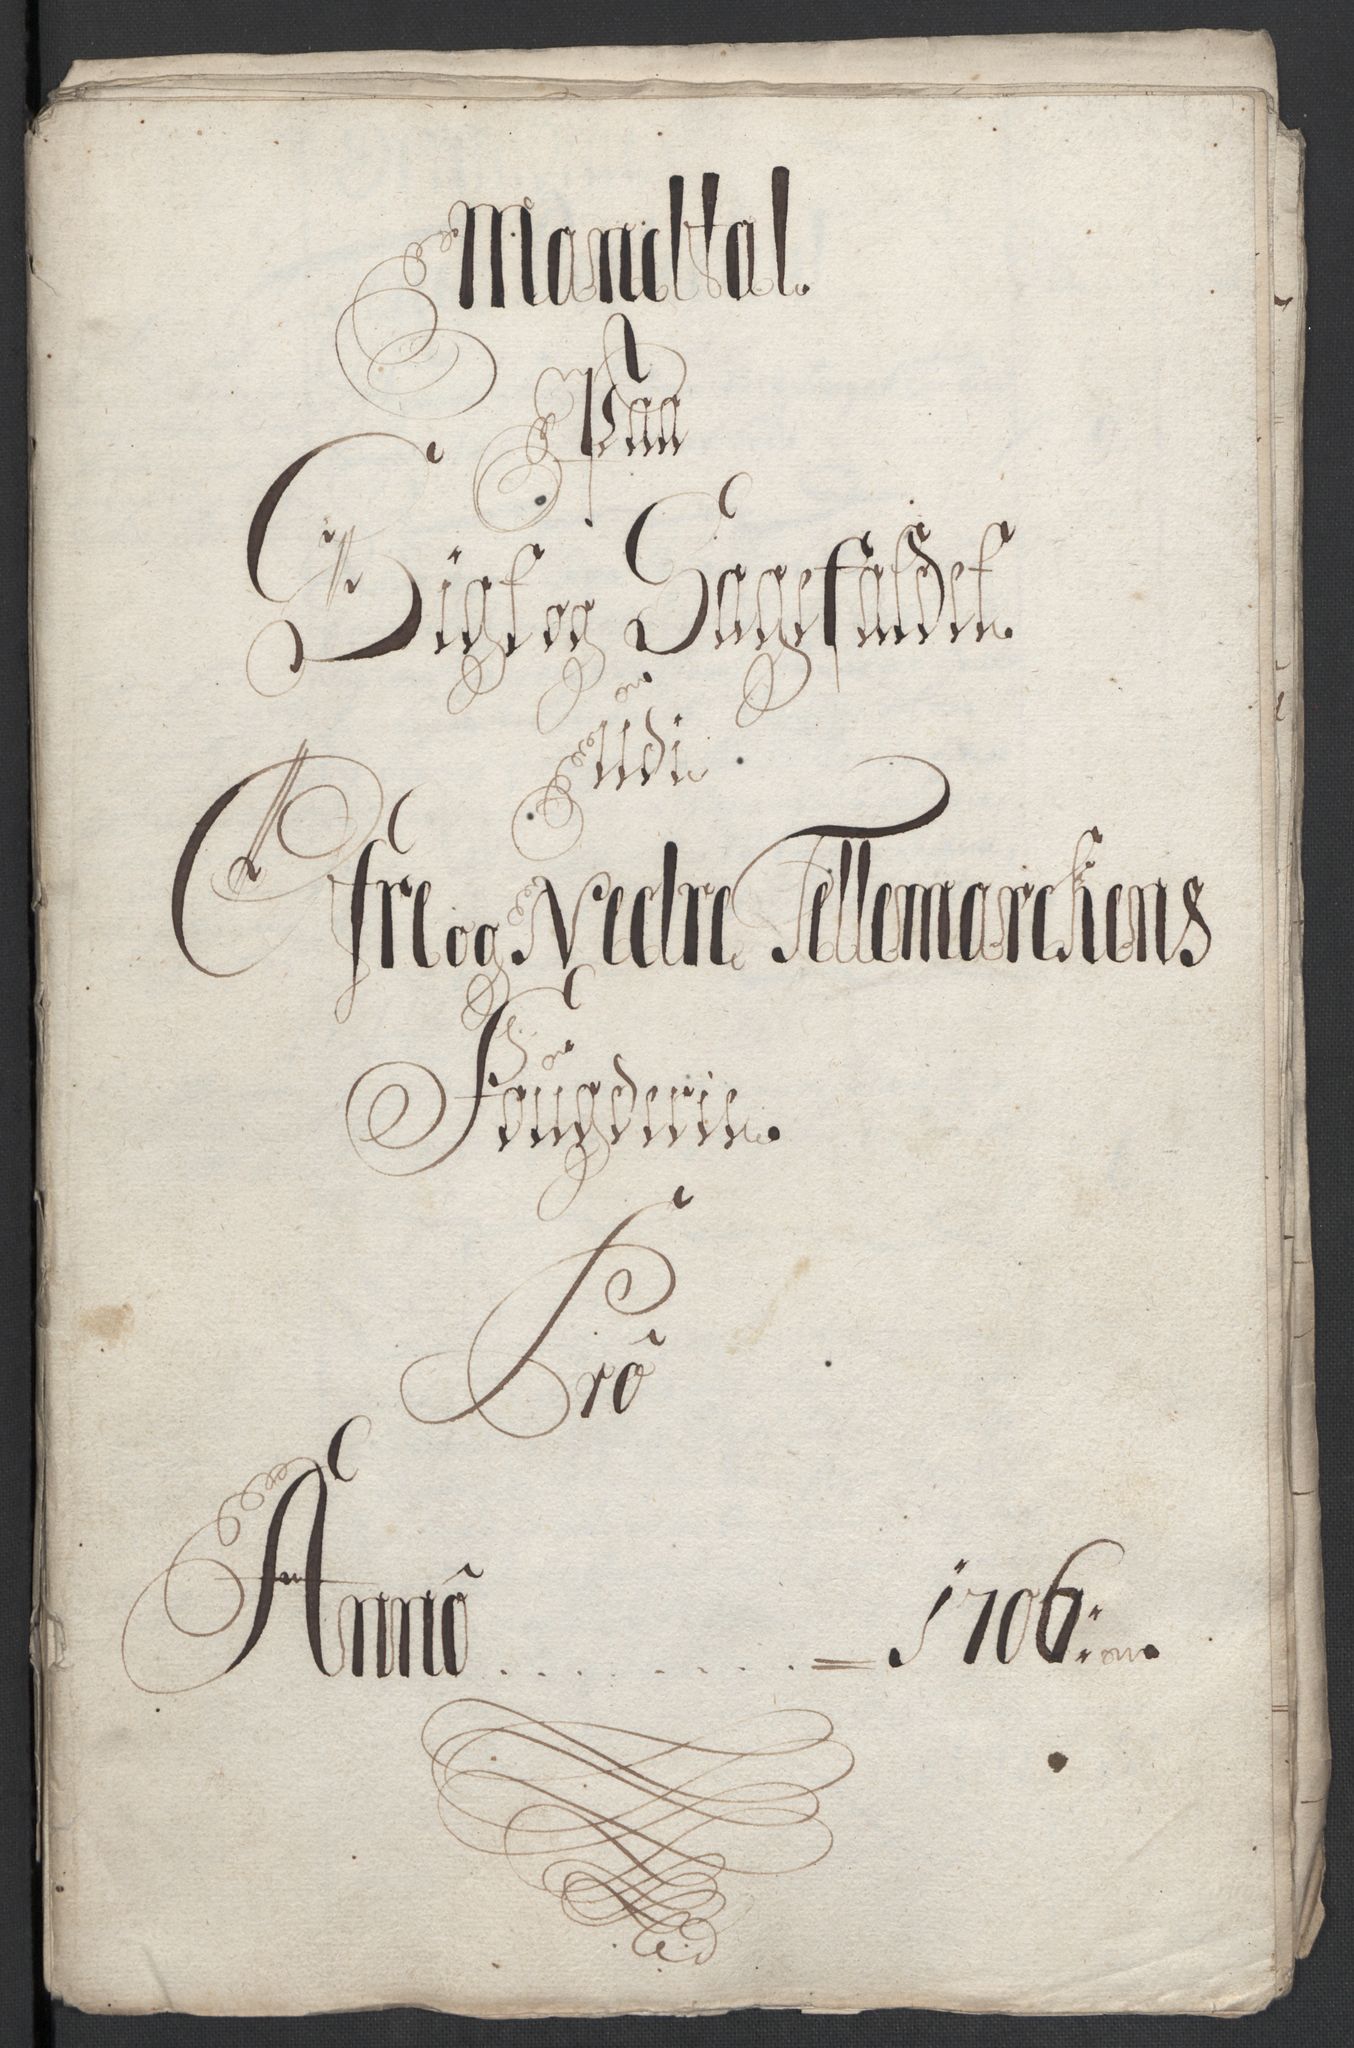 Mandtal.
Paa
Sigt og Sagefaldet.
Udi
Øfre og Nedre Tellemarckens
Fougderie.
Prõ
Annõ . . . . . . . . = 1706: